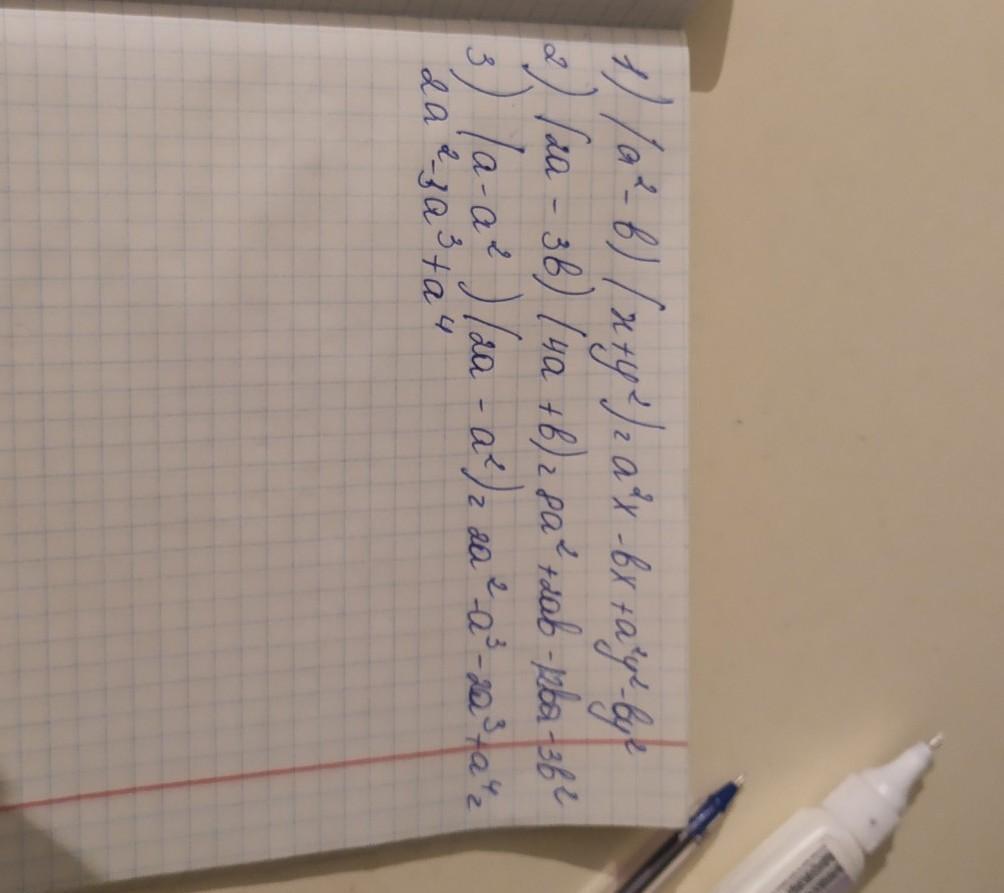 1) (a²-b)(x+y²)=a²x-bx+a²y²-by²
2) (2a-3b)(4a+b)=8a²+2ab-12ba-3b²
3) (a-a²)(2a-a²)=2a²-a³-2a³+a⁴=
2a²-3a³+a⁴